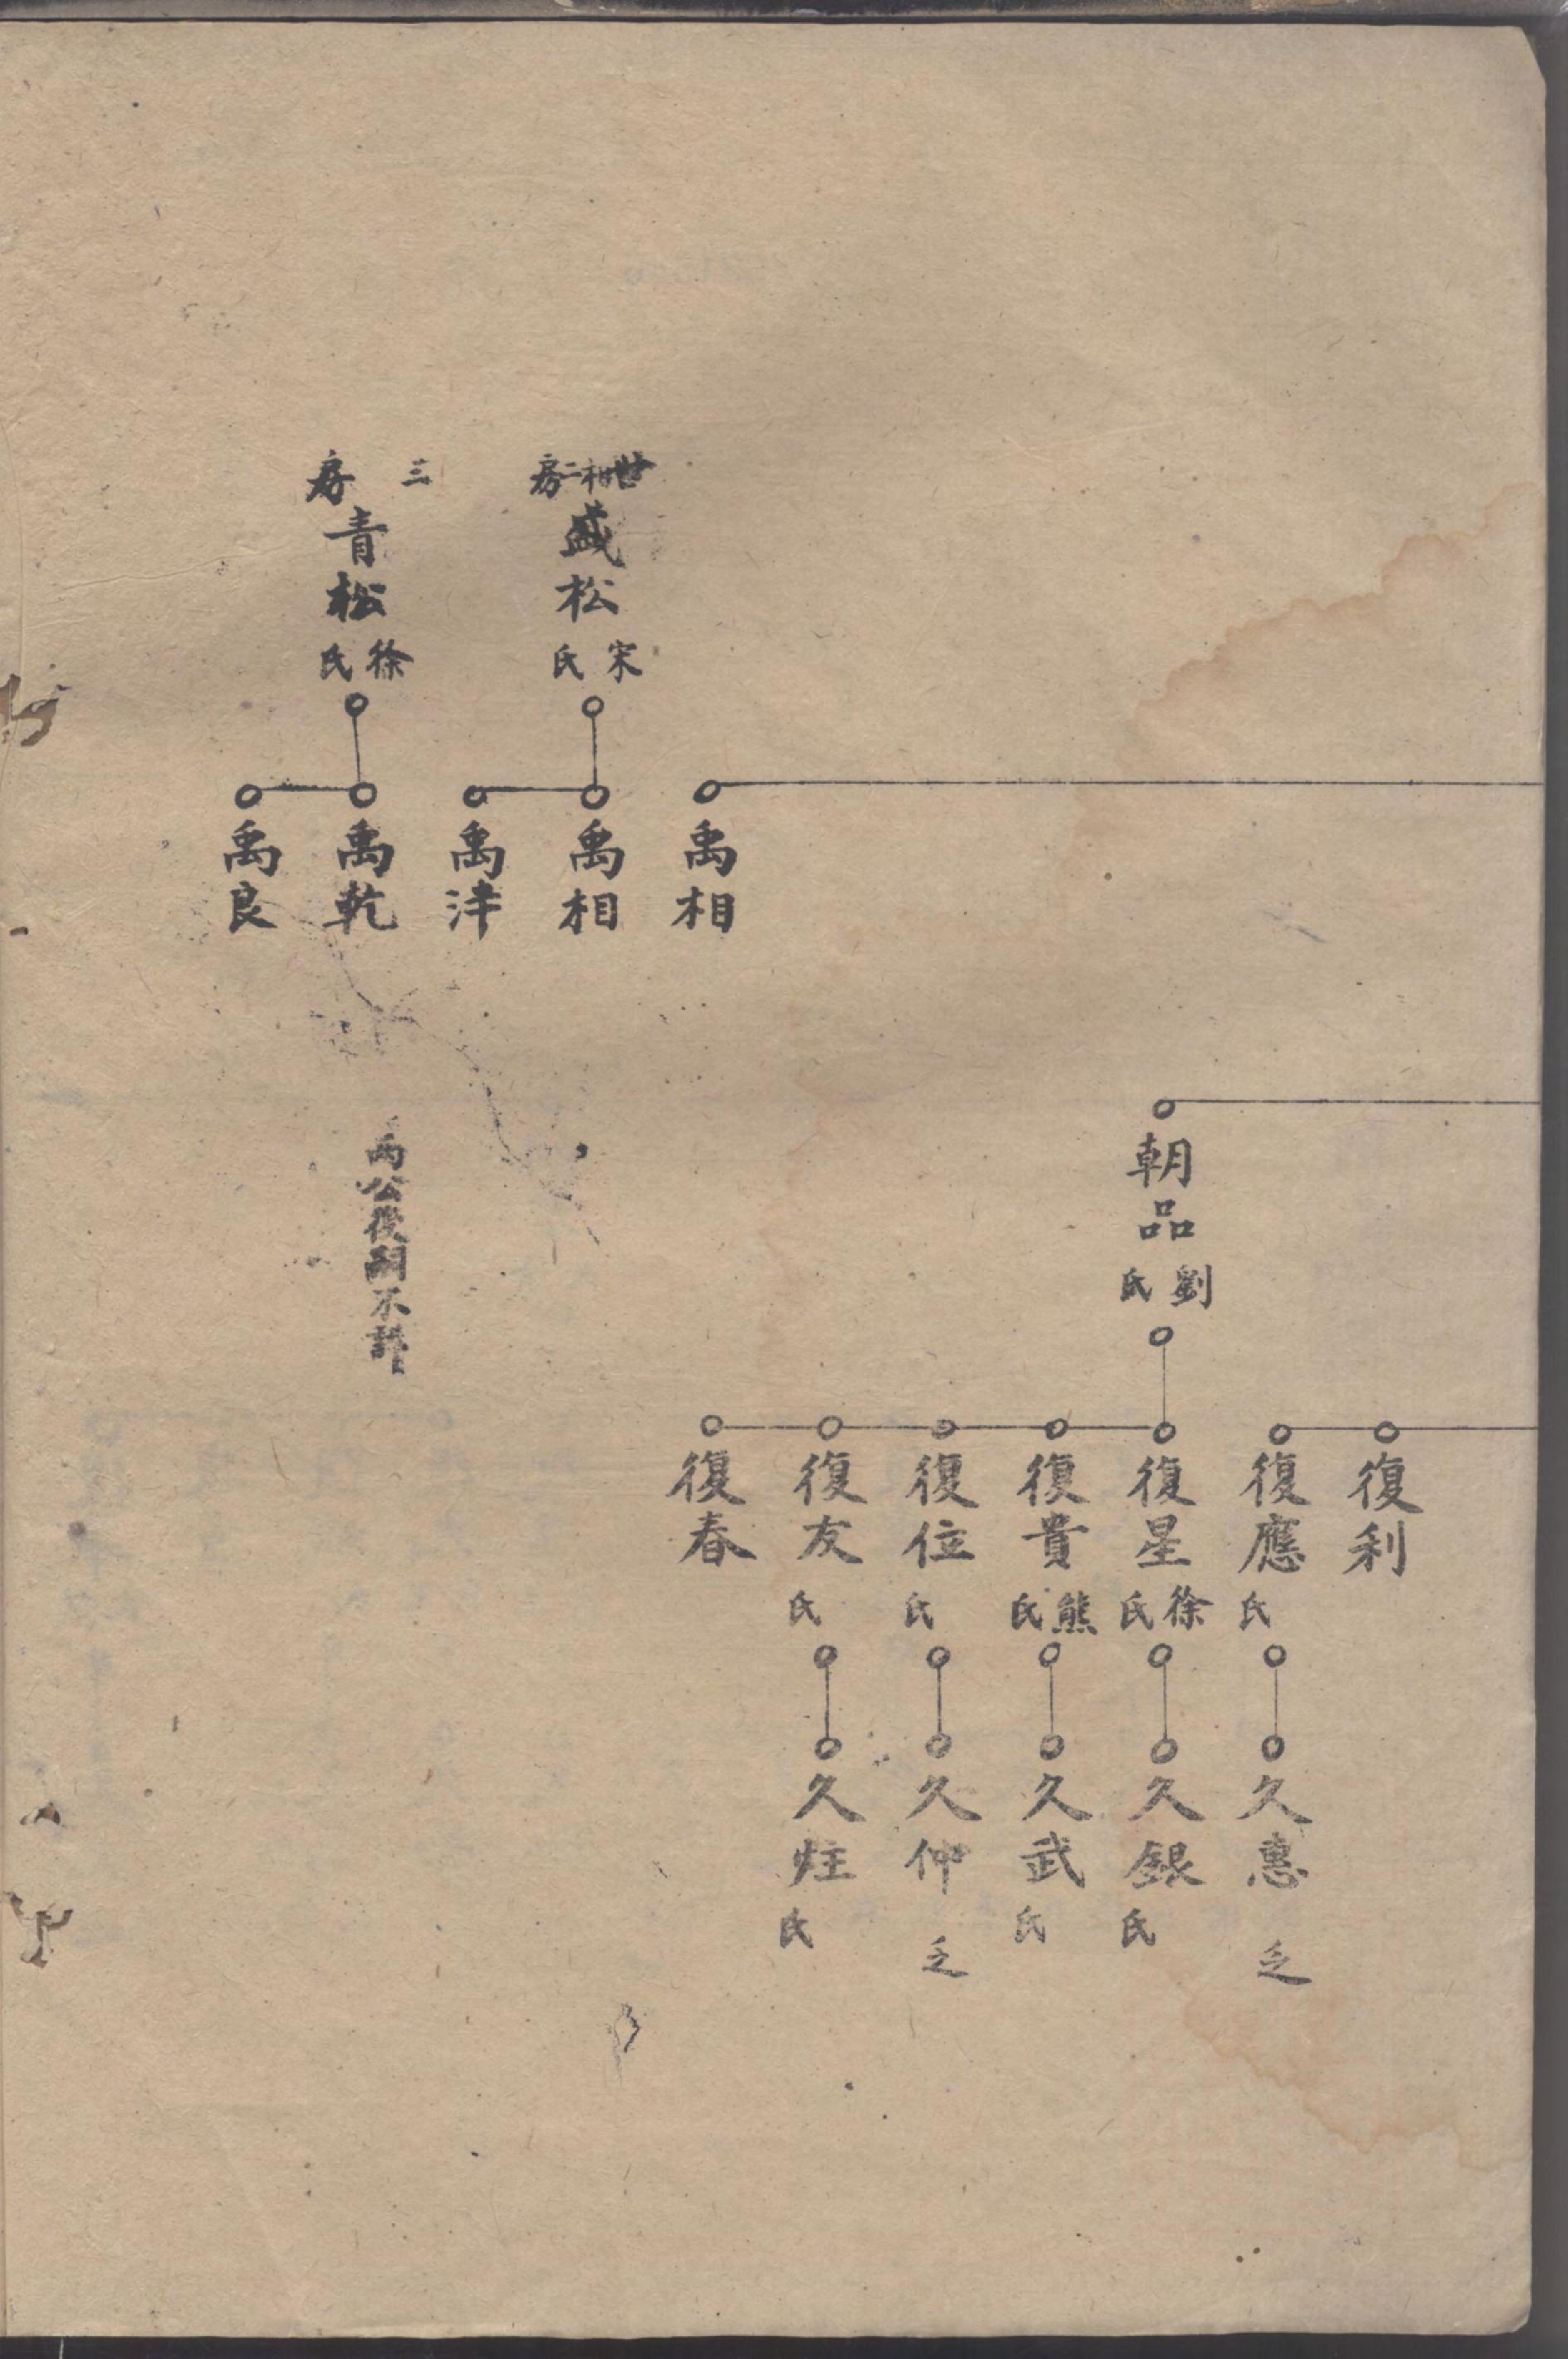 禹相
世相二房
盛松
宋氏
禹相
禹津
三房
青松
徐氏
禹乾
禹良
朝品
劉氏
兩公後嗣不詳
復利
復應
氏
復星
徐氏
復貴
熊氏
復位
氏
復友
氏
復春
久惠
乏
久銀
氏
久武
氏
久仲
乏
久炷
氏